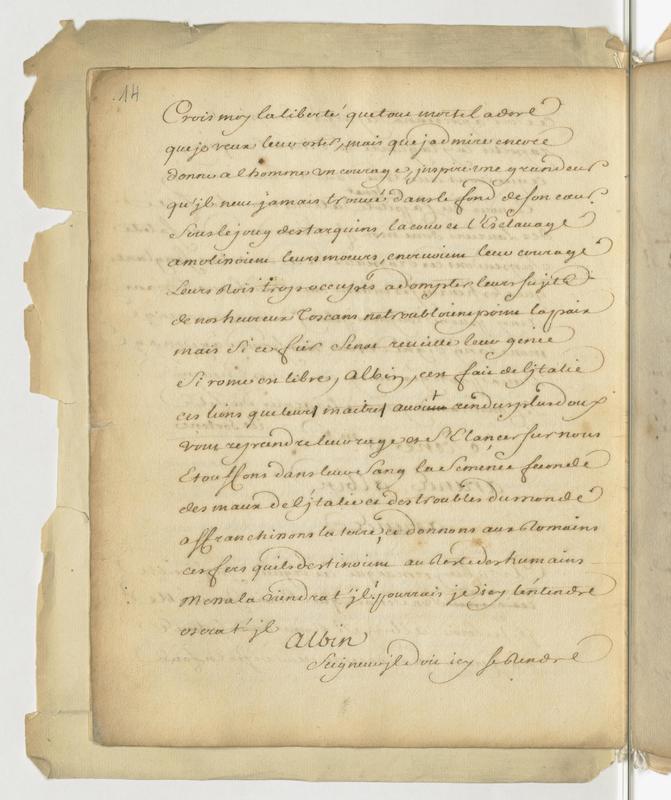 14
Crois moy la liberté que tout mortel adore
que je veux leur oster, mais que j'admire encore
donne a l'homme un courage, jnspire une grandeur
qu'jl neut jamais trouvé dans le fond de son cœur
Sous le joug des tarquins, la cour et l'Esclavage
amolissoient leurs mœurs, enervoient leur courage
Leurs Rois trop occupés a dompter leurs sujets
de nos heureux Toscans ne troubloient point la paix
mais si ce fier Senat reveille leur genie
Si rome est libre, Albin, c'est fait de l'jtalie
ces lions que leurs maitres avoient rendus plus doux
vont reprendre leur rage et s'Elancer sur nous
Etouffons dans leur sang la semence feconde
des maux de l'jtalie et des troubles du monde
affranchissons la terre, et donnons aux Romains
ces fers quils destinoient au Reste des humains
Messala viendra t'jl? pourrais je icy l'entendre
osera t'jl
Albin
Seigneur jl doit icy se Rendre